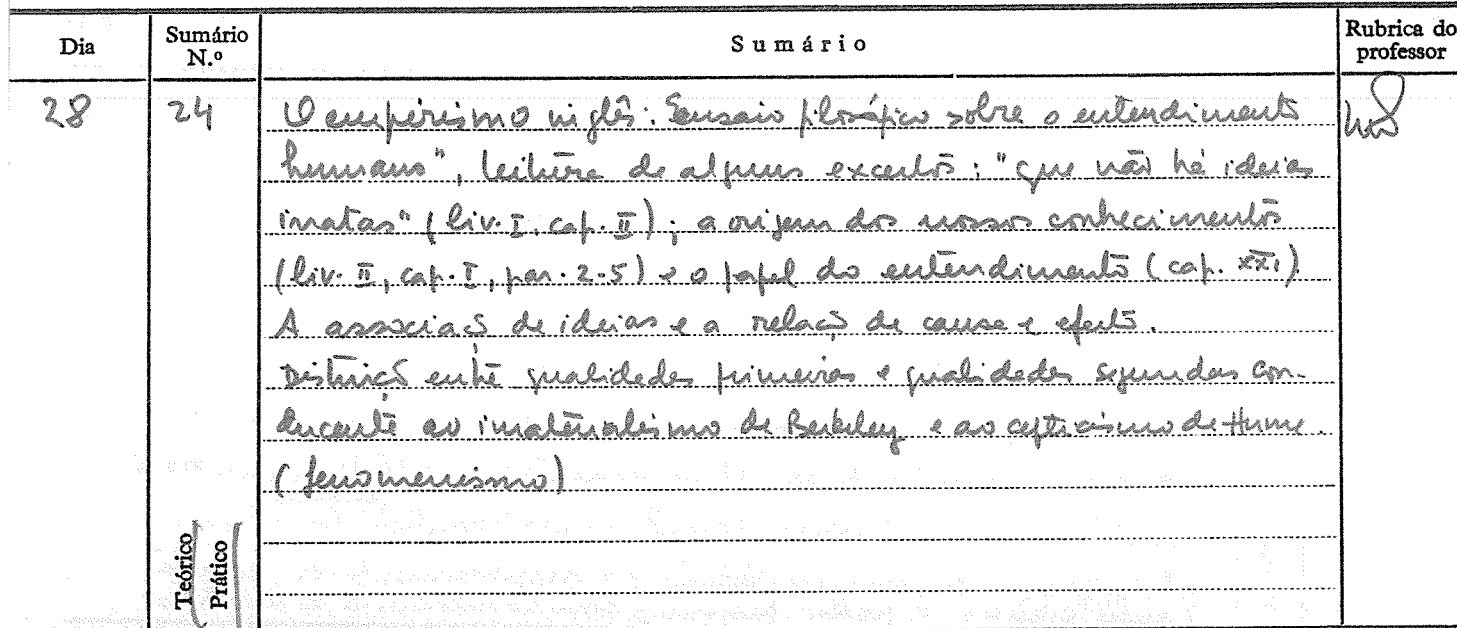 Dia Sumário N.º Sumário Rubrica do professor
28 24 O empirismo inglês: Ensaio filosófico sobre o entendimento
humano", leitura de alguns excertos: "que não há ideias
inatas" (liv. I, cap. II); a origem dos nossos conhecimentos
(liv. II, cap. I, par. 2-5) e o papel do entendimento (cap. XXI)
A associação de ideias e a relação de causa e efeito.
Distinção entre qualidades primeiras e qualidades segundas con-
ducente ao imaterialismo de Berkeley e ao cepticismo de Hume.
(fenomenismo)
Teórico
Prático